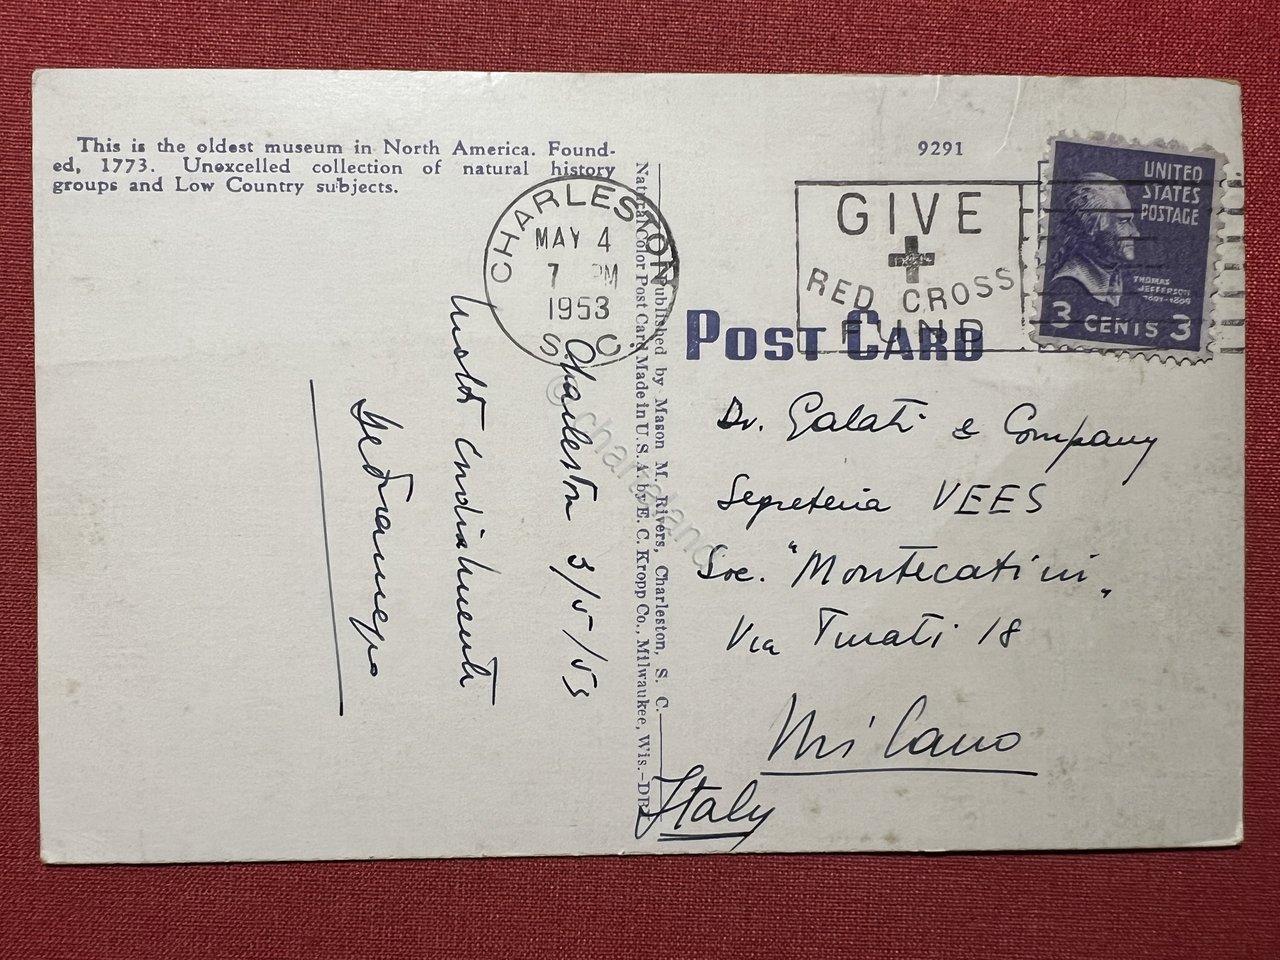 This is the oldest museum in North America. Found-
ed, 1773. Unexcelled collection of natural history
groups and Low Country subjects.
CHARLESTON
MAY 4
7 PM
1953
S C
Charleston 3/5/53
Molti cordialmenti
Published by Mason M. Rivers, Charleston, S. C.
Natural Color Post Card Made in U.S.A. by E. C. Kropp Co., Milwaukee, Wis.-DP
9291
GIVE
RED CROSS
FUND
UNITED
STATES
POSTAGE
THOMAS
JEFFERSON
1801-1809
3 CENTS 3
POST CARD
Dr. Galati & Company
Segreteria VEES
Soc. "Montecatini"
Via Turati 18
Milano
Italy